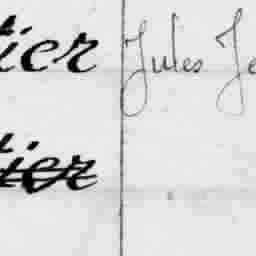 ier Jules Je
ier